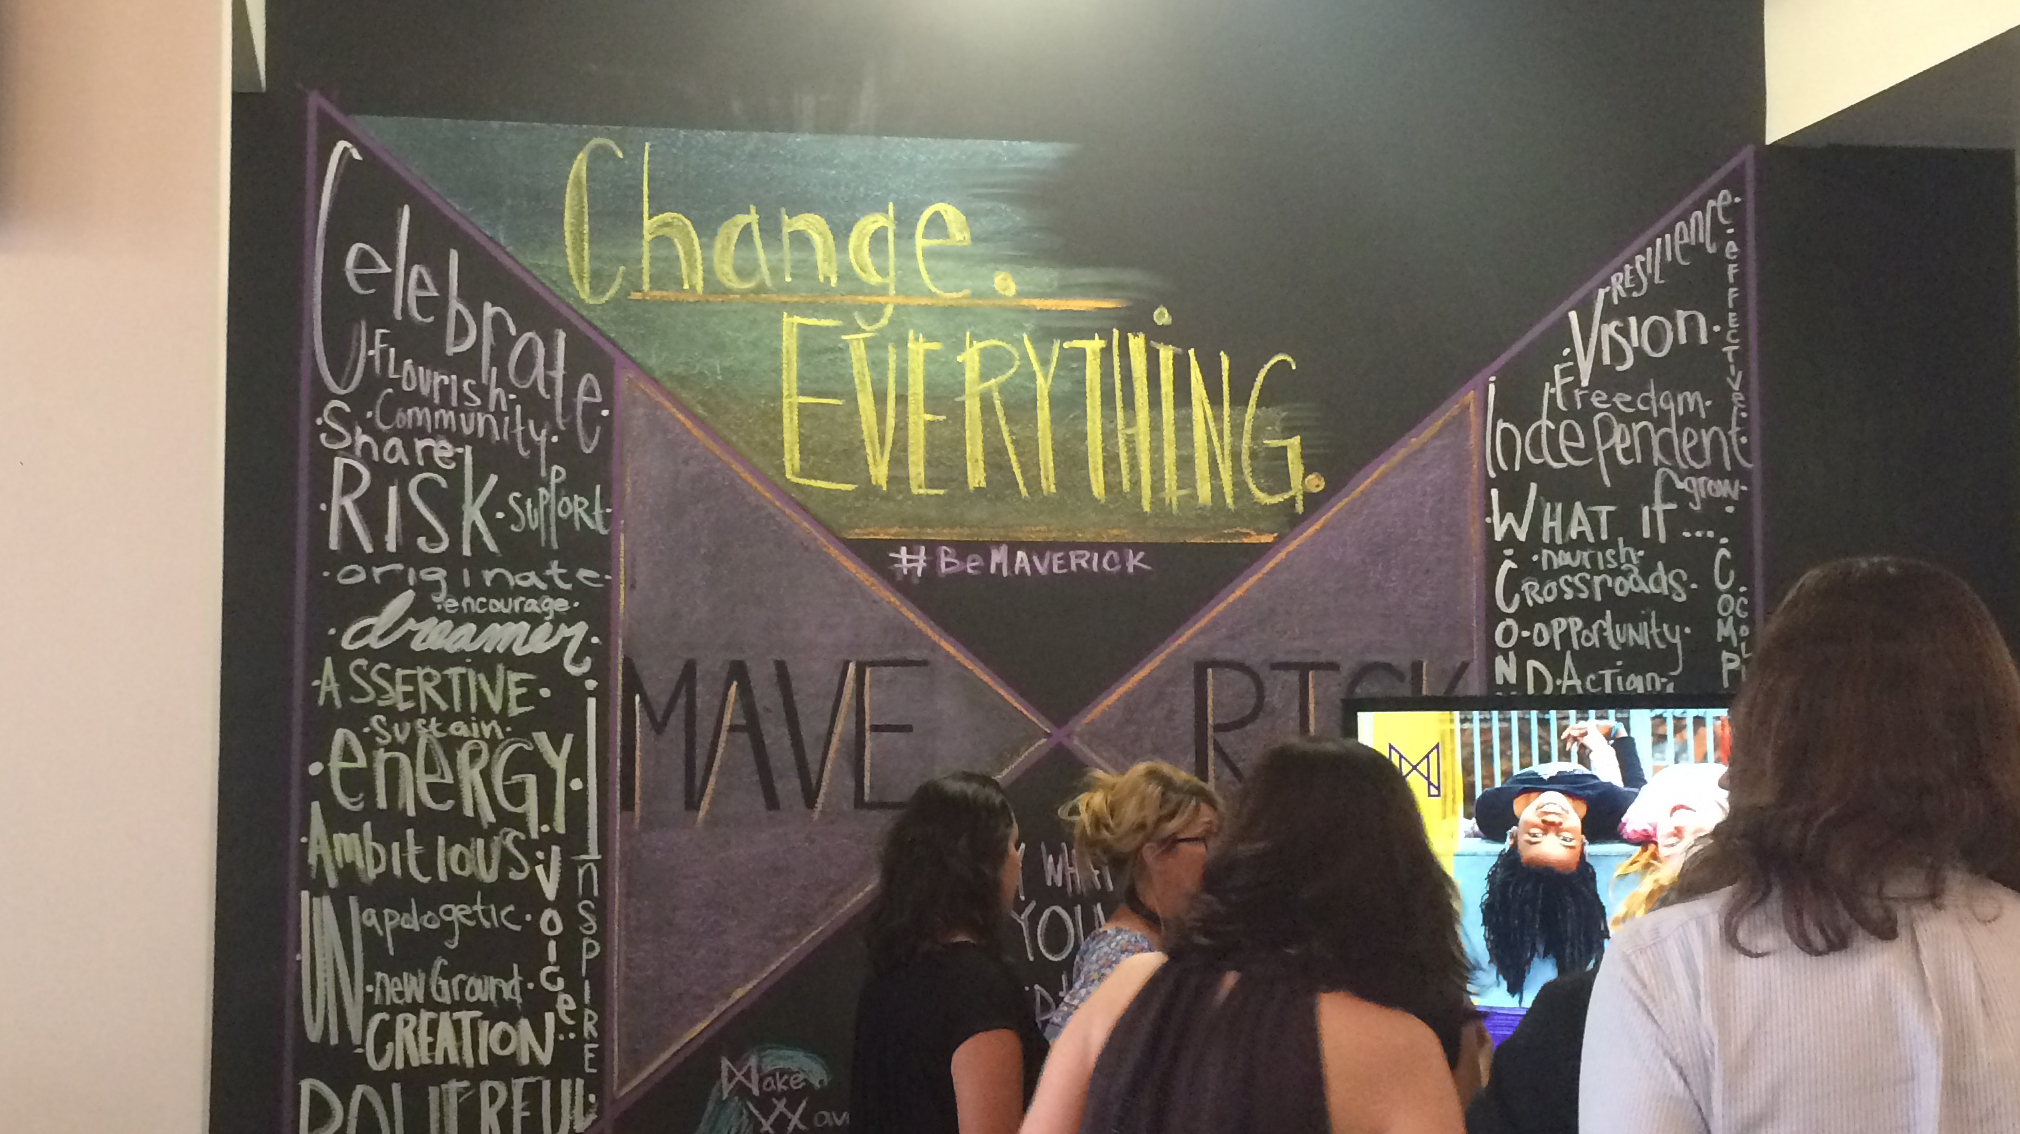 Change.
EVERYTHING.
#BeMAVERICK
MAVE RICK
Celebrate
·FLourish·
·Community·
·Share·
·RISK·support·
·originate·
·encourage·
·dreamer·
·ASSERTIVE·
·Sustain·
·enERGY·
INSPIRE
·Ambitious·
·Voice·
·UNapologetic·
·newGround·
·CREATION·
resilience·
·eFFECTIVE·
·Vision·
·Freedom·
Independent·
·grow·
·WHAT if...
·nourish·
·Crossroads·
·opportunity·
·Action·
WHAT
YOU
Make